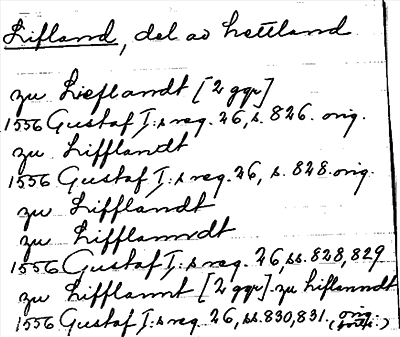 Lifland, del av Lettland
zu Lieflandt [2 ggr]
1556 Gustaf I:s reg. 26, s. 826. orig.
zu Lifflandt
1556 Gustaf I:s reg. 26, s. 828. orig.
zu Lifflandt
zu Lifflanndt
1556 Gustaf I:s reg. 26, ss. 828, 829
zu Lifflannt [2 ggr]. zu Liflanndt
1556 Gustaf I:s reg. 26, ss. 830, 831. orig.